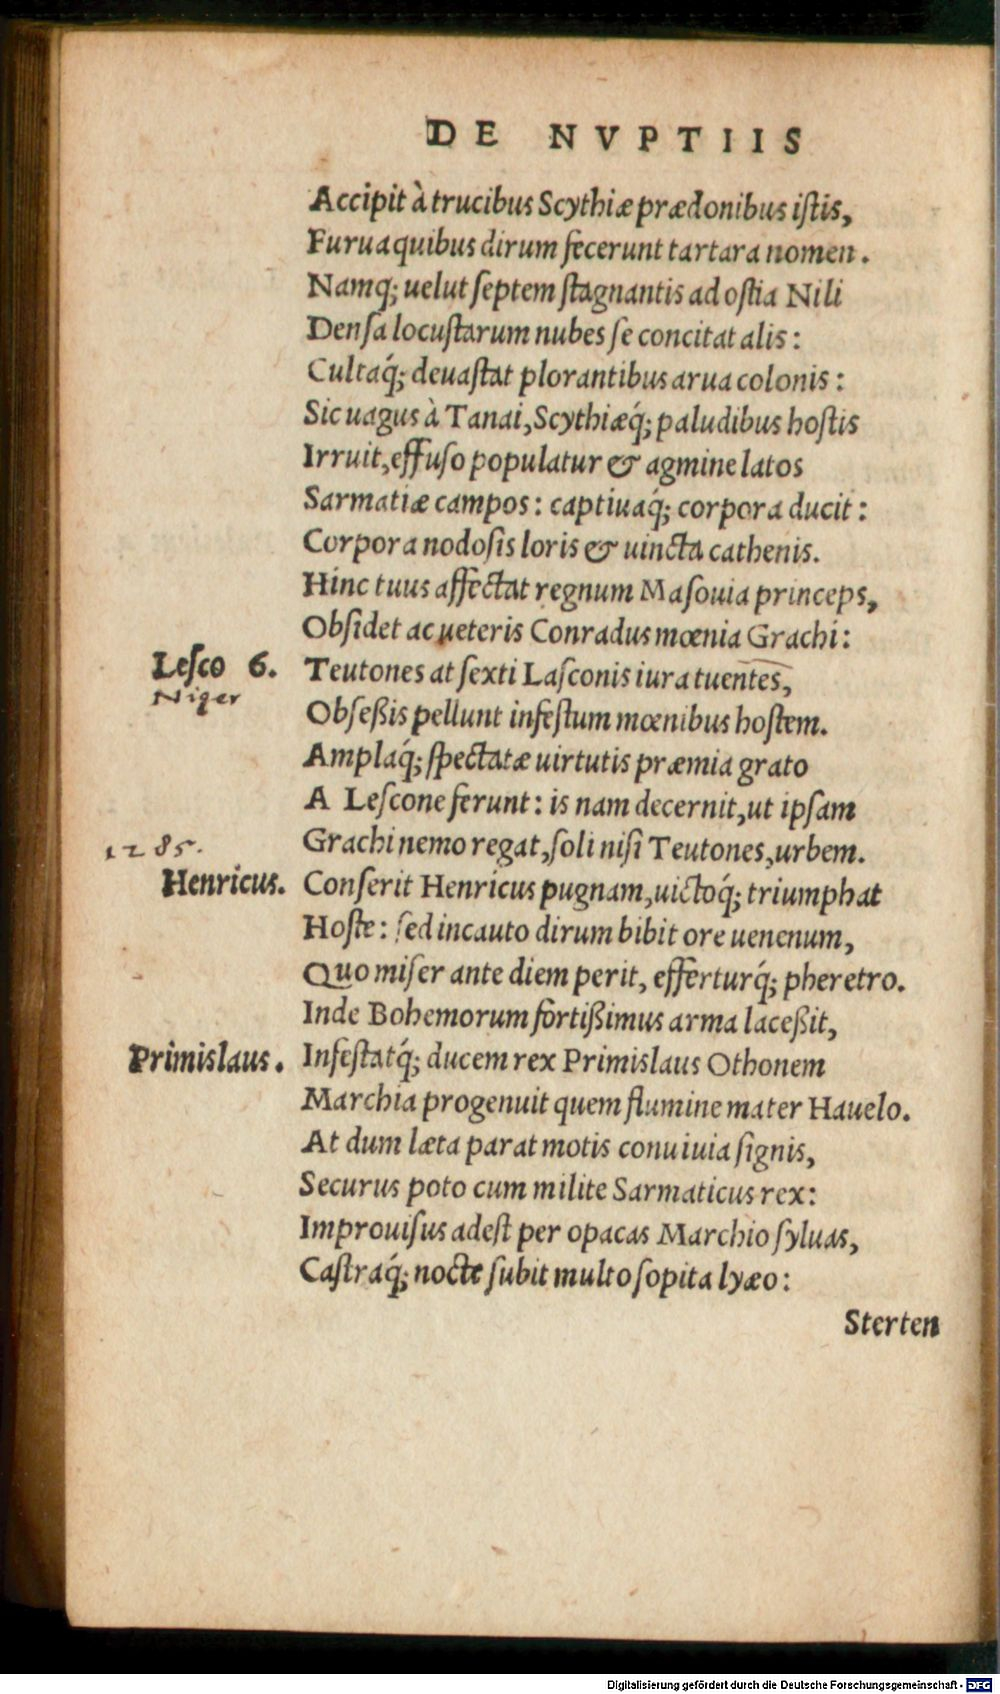 DE NVPTIIS
Accipit à trucibus Scythiæ prædonibus iſtis,
Furua quibus dirum fecerunt tartara nomen.
Namq; uelut ſeptem ſtagnantis ad oſtia Nili
Denſa locuſtarum nubes ſe concitat alis:
Cultaq́; deuaſtat plorantibus arua colonis:
Sic uagus à Tanai, Scythiæq́; paludibus hoſtis
Irruit, effuſo populatur & agmine latos
Sarmatiæ campos: captiuaq́; corpora ducit:
Corpora nodoſis loris & uincta cathenis.
Hinc tuus affectat regnum Maſouia princeps,
Obſidet ac ueteris Conradus mœnia Grachi:
Leſco 6. Teutones at ſexti Laſconis iura tuentes,
Niger
Obſeßis pellunt infeſtum mœnibus hoſtem.
Amplaq́; ſpectatæ uirtutis præmia grato
A Leſcone ferunt: is nam decernit, ut ipſam
1285.
Grachi nemo regat, ſoli niſi Teutones, urbem.
Henricus. Conſerit Henricus pugnam, uictoq́; triumphat
Hoſte: ſed incauto dirum bibit ore uenenum,
Quo miſer ante diem perit, efferturq́; pheretro.
Inde Bohemorum fortißimus arma laceßit,
Primislaus. Infeſtatq́; ducem rex Primislaus Othonem
Marchia progenuit quem flumine mater Hauelo.
At dum læta parat motis conuiuia ſignis,
Securus poto cum milite Sarmaticus rex:
Improuiſus adeſt per opacas Marchio ſyluas,
Caſtraq́; nocte ſubit multo ſopita lyæo:
Sterten
Digitalisierung gefördert durch die Deutsche Forschungsgemeinschaft - DFG